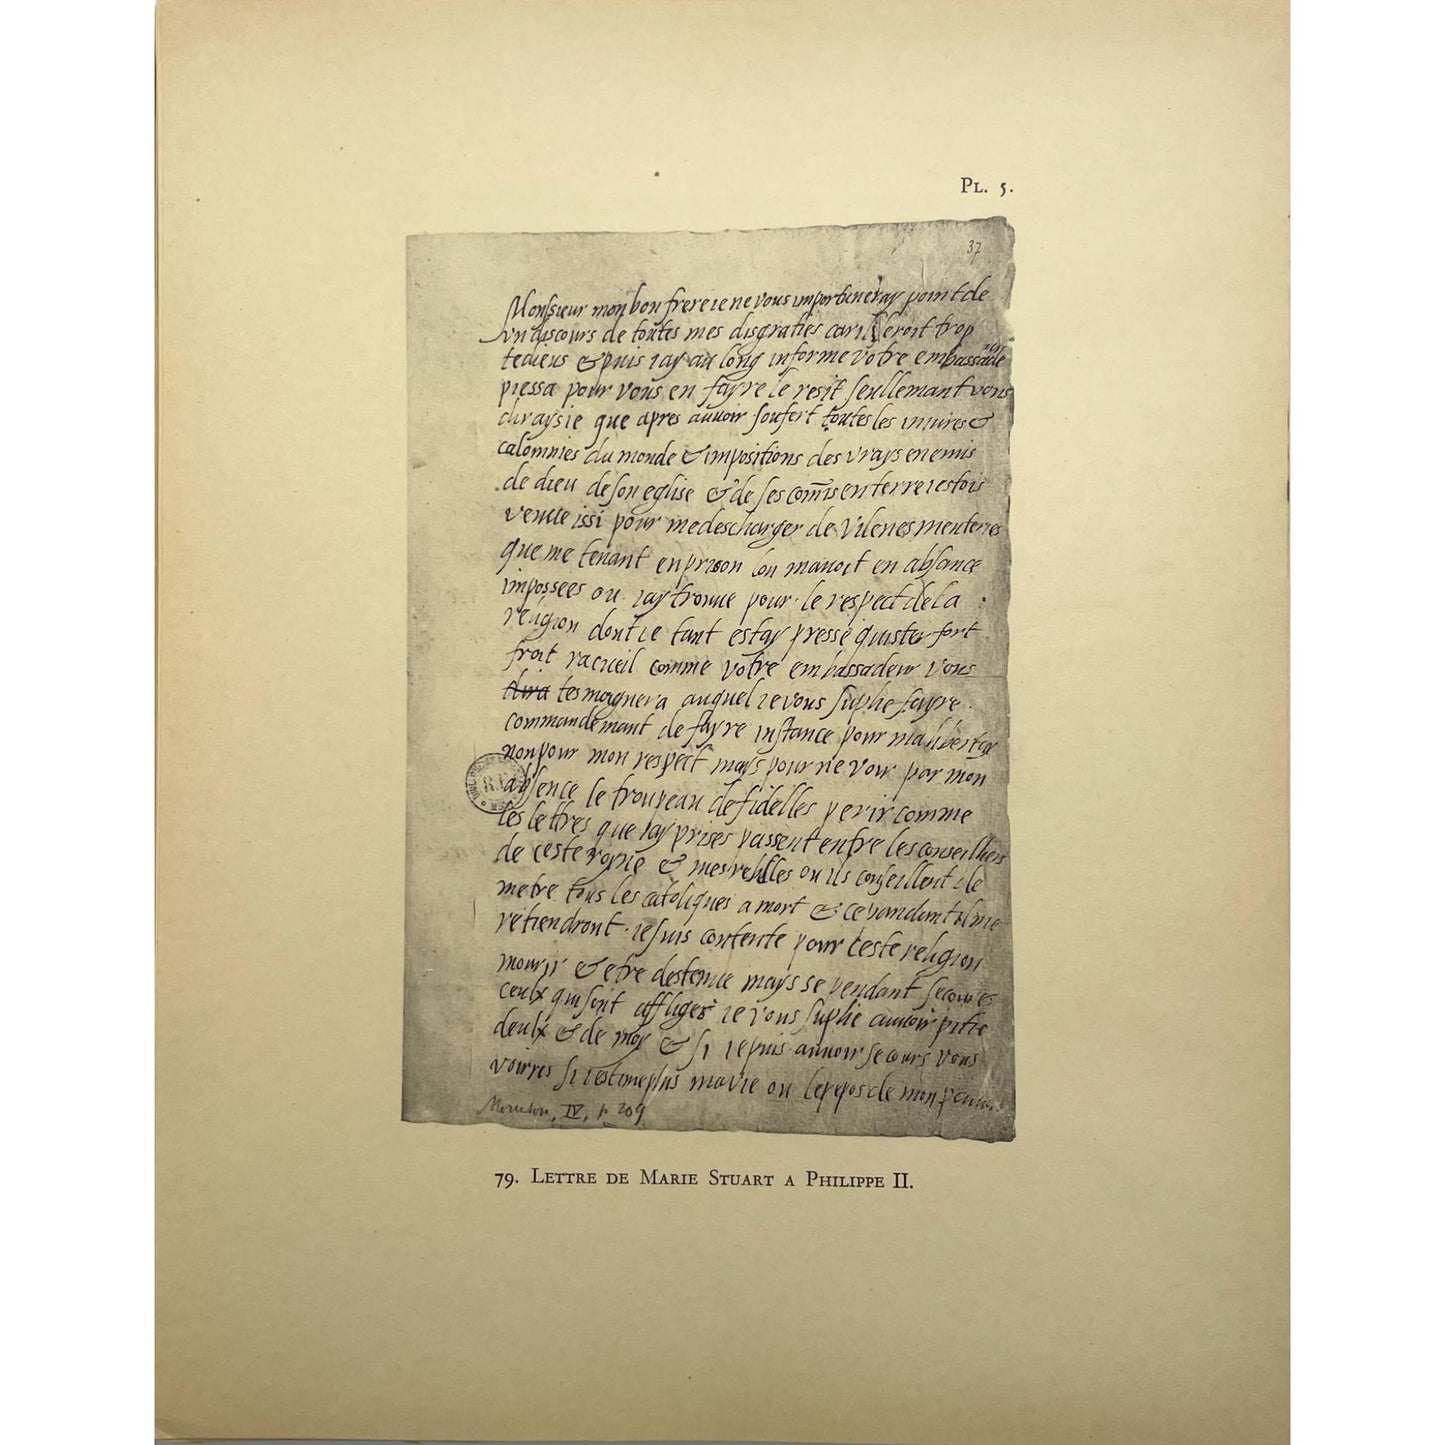 PL. 5.
37
Monsieur mon bon frere ie ne vous importuneray point de
un discours de toutes mes disgraties car il seroit trop
tedieus & puis iay au long informe votre embassade
piessa pour vous en fayre le resit seullemant vous
diray ie que apres auuoir soufert toutes les iniures &
calomnies du monde & impositions des vrays enemis
de dieu de son eglise & de ses comis en terre iestois
venue issi pour me descharger de vilenes menteries
que me tenant en prison lon mauoit en absance
impossees ou iay trouue pour le respect de la
religion dont ie tant estay presse quister fort
froit racueil comme votre embassadeur vous
dira tesmoignera auquel ie vous suplie fayre
commandemant de fayre instance pour ma liberte
non pour mon respect mays pour ne voir par mon
absence le troupeau de fidelles perir comme
les lettres que iay prises passent entre les conseillers
de ceste roynie & mes rebelles ou ils conseillent de
metre tous les catoliques a mort & ce pandant ilme
retiendront ie suis contente pour ceste religion
mourir & etre destenue mays se pendant secoures
ceulx qui sont affliges ie vous suplie auuoir pitie
deulx & de moy & si ie puis auuoir secours vous
voirres si iestime plus ma vie ou le repos de mon
IV, p 209
79. LETTRE DE MARIE STUART A PHILIPPE II.